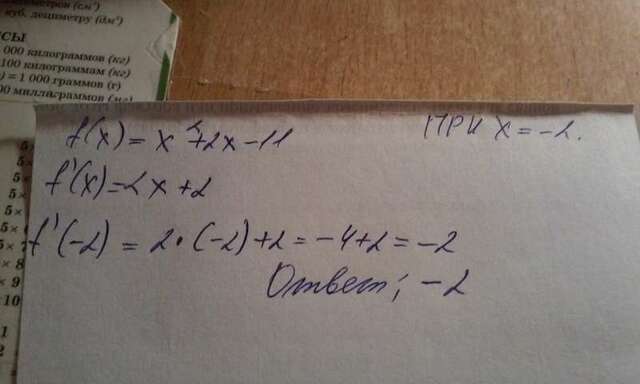 куб. дециметру (дм³)
000 килограммов (кг)
100 килограммам (кг)
) = 1 000 граммов (г)
00 миллиграммов (мг)
f(x) = x²+2x-11 ПРИ x = -2.
f'(x) = 2x+2
f'(-2) = 2·(-2)+2 = -4+2 = -2
Ответ: -2